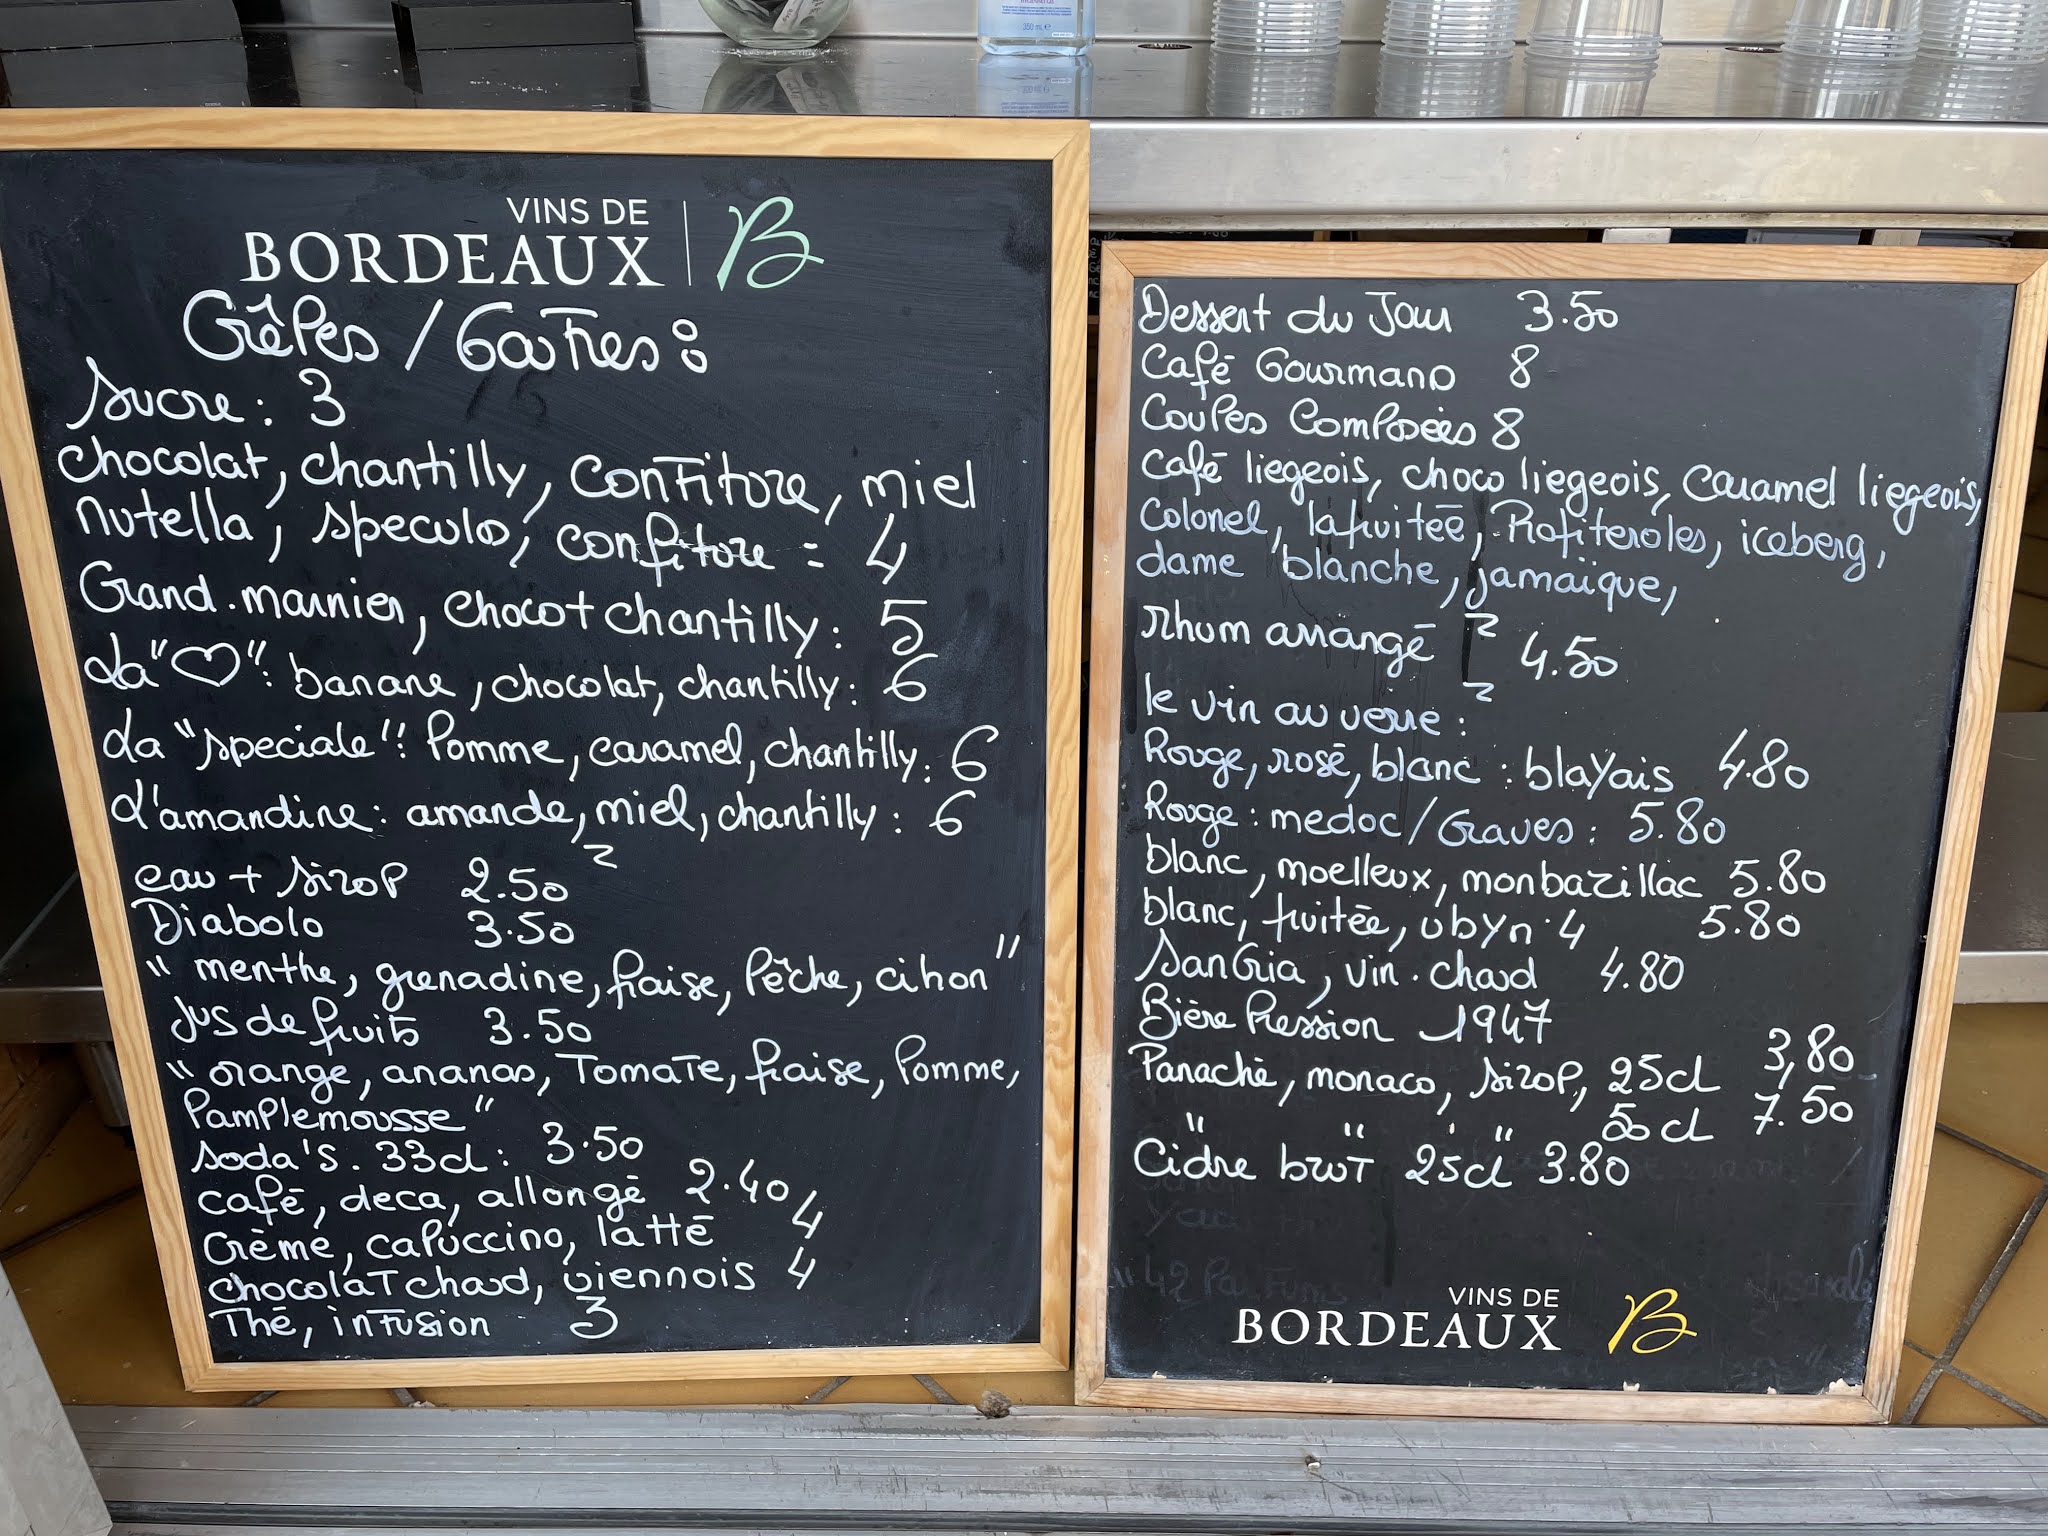 VINS DE
BORDEAUX B
Crêpes / Gaufres :
Sucre : 3
chocolat, chantilly, confiture, miel
nutella, speculo, confiture = 4
Grand.marnier, choco+chantilly : 5
La "♡" : banane, chocolat, chantilly : 6
La "speciale" : Pomme, caramel, chantilly : 6
L'amandine : amande, miel, chantilly : 6
eau + sirop 2.50
Diabolo 3.50
" menthe, grenadine, fraise, Pêche, citron "
Jus de fruits 3.50
" orange, ananas, Tomate, fraise, Pomme,
Pamplemousse "
soda's. 33cl : 3.50
café, deca, allongé 2.40
Crème, capuccino, latté 4
chocolat chaud, viennois 4
Thé, infusion 3
Dessert du Jour 3.50
Café Gourmand 8
Coupes Composées 8
Café liegeois, choco liegeois, caramel liegeois,
Colonel, lafruitée, Profiteroles, iceberg,
dame blanche, jamaïque,
rhum arrangé 4.50
le vin au verre :
Rouge, rosé, blanc : blayais 4.80
Rouge : medoc/Graves : 5.80
blanc, moelleux, monbazillac 5.80
blanc, fruitée, uby n°4 5.80
Sangria, vin.chaud 4.80
Bière Pression 1947
Panaché, monaco, sirop, 25cl 3,80
" " " 50cl 7.50
Cidre brut 25cl 3.80
VINS DE
BORDEAUX B